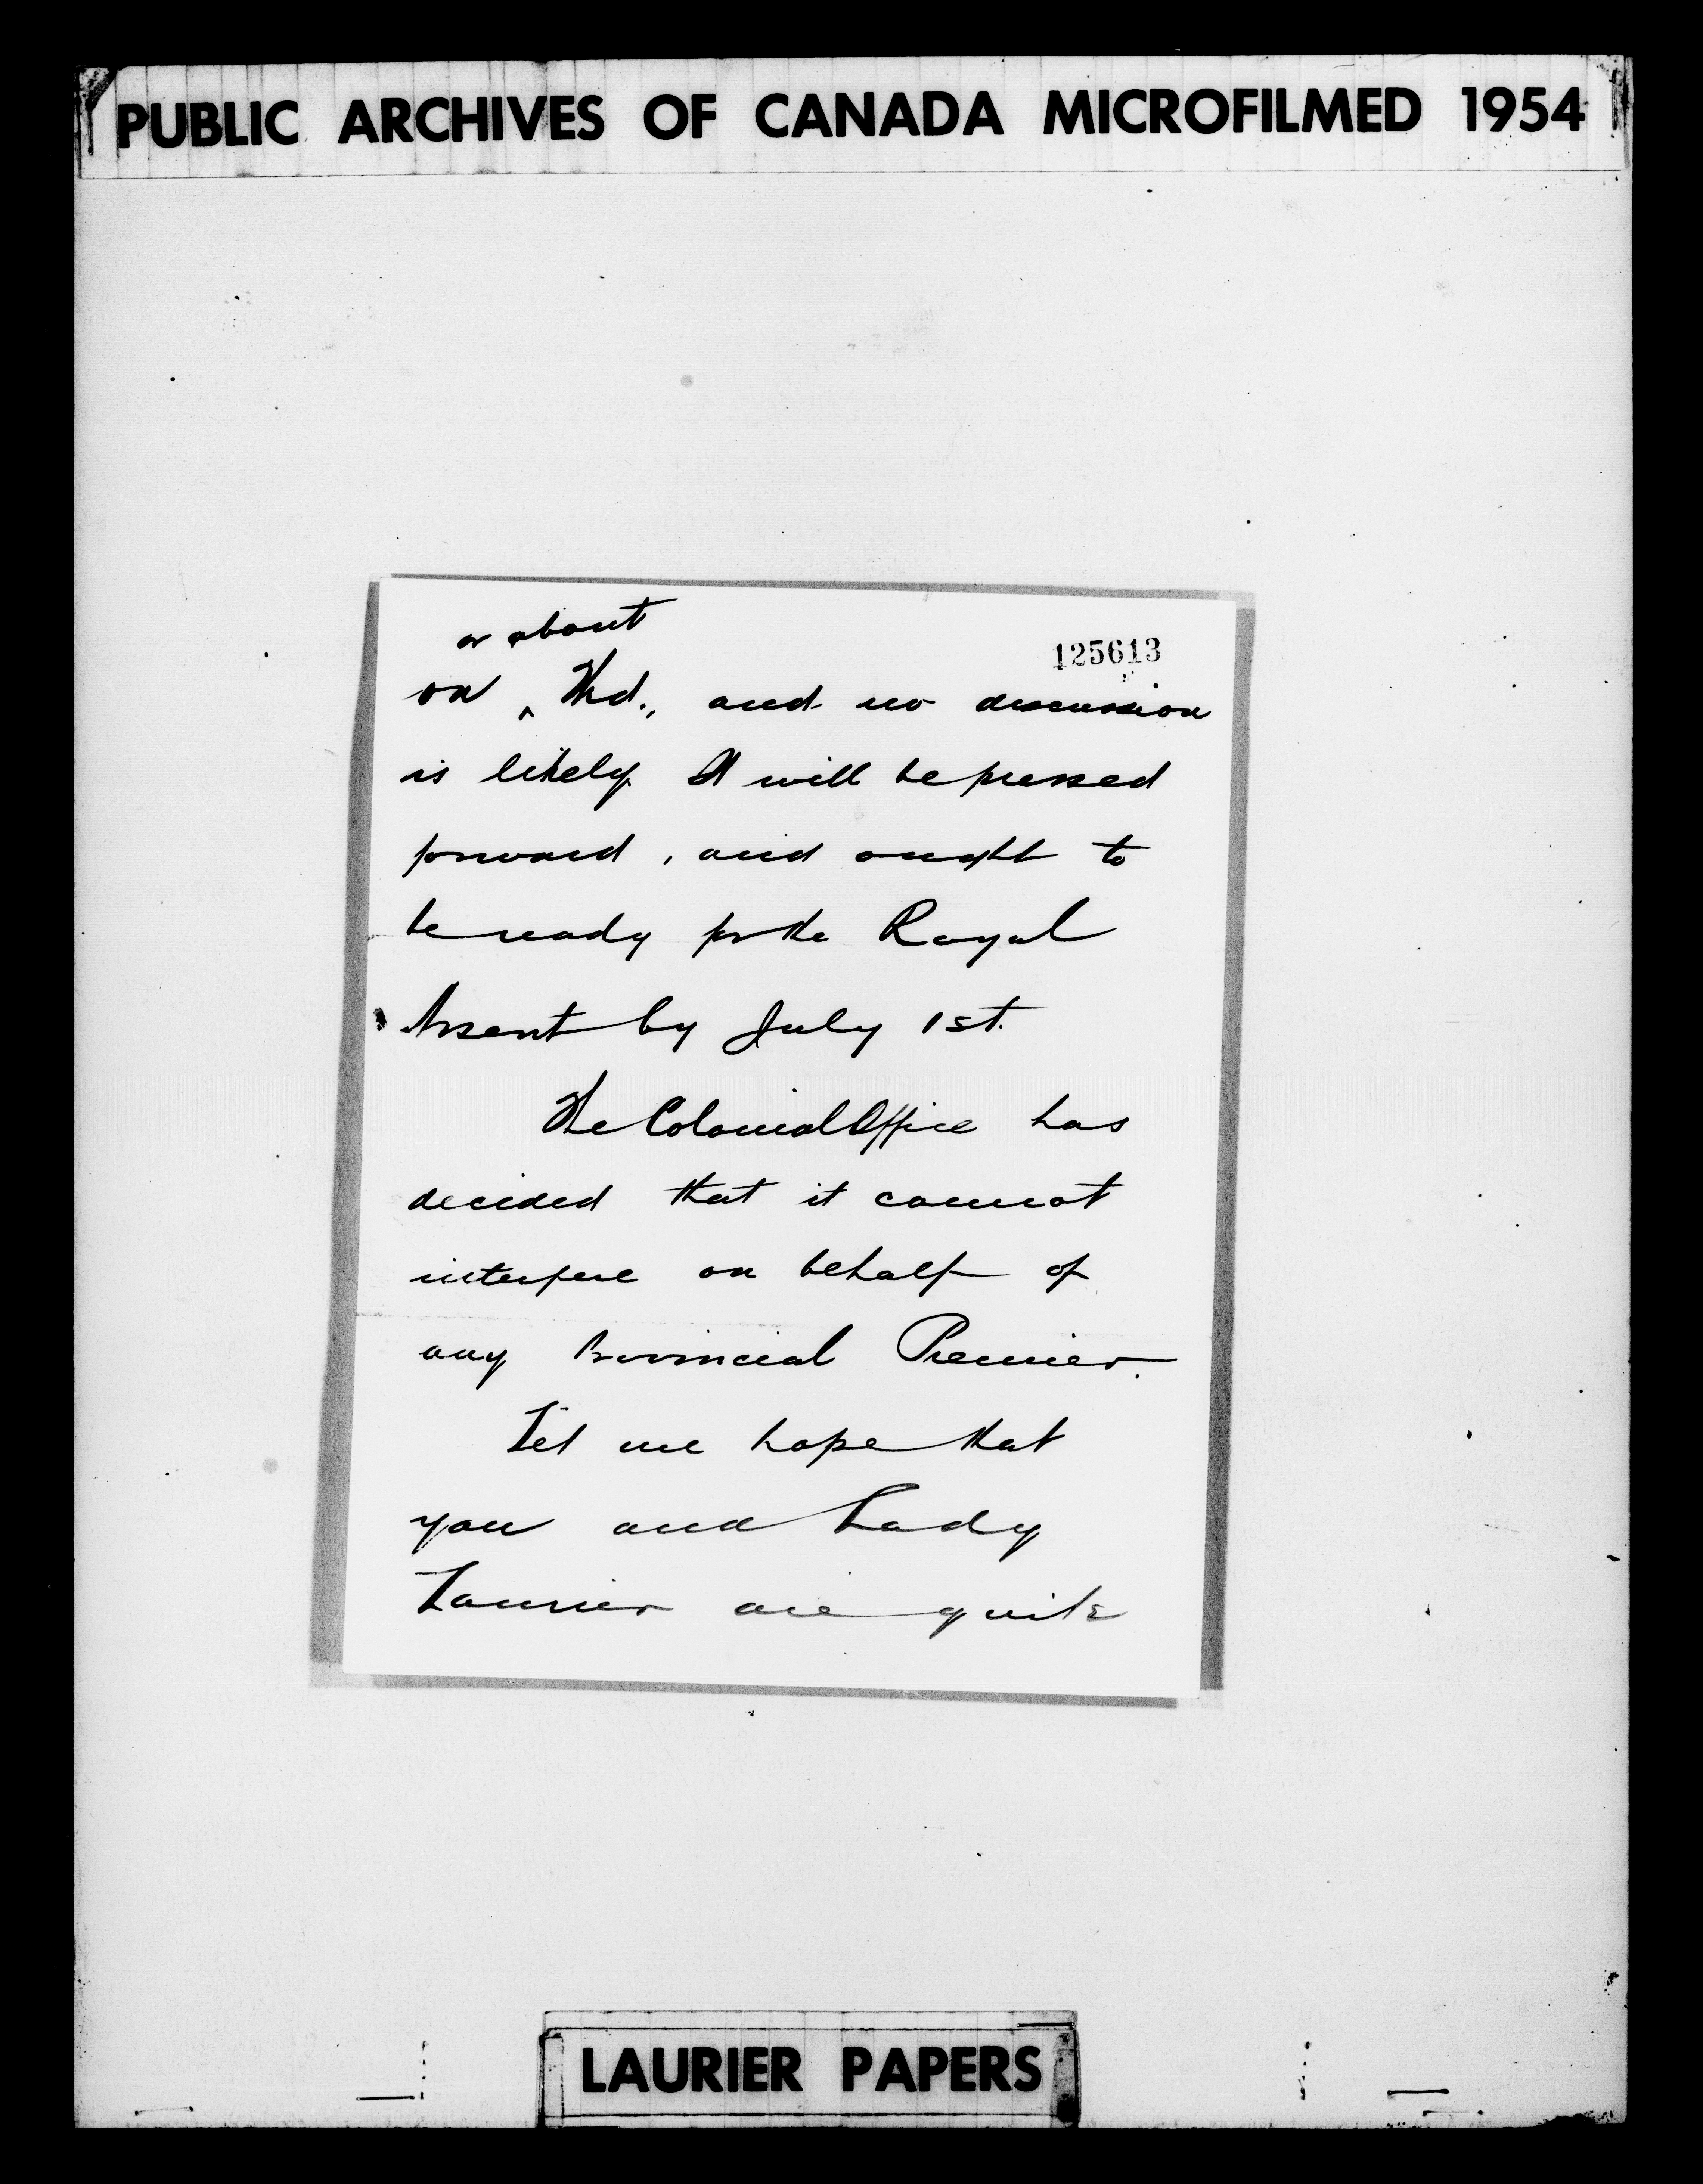 PUBLIC ARCHIVES OF CANADA MICROFILMED 1954
or about
125613
on ^ and no discussion
is likely. It will be pressed
forward, and ought to
be ready for the Royal
Assent by July 1st.
The Colonial Office has
decided that it cannot
interfere on behalf of
any Provincial Premier.
Let me hope that
you and Lady
Laurier are quite
LAURIER PAPERS